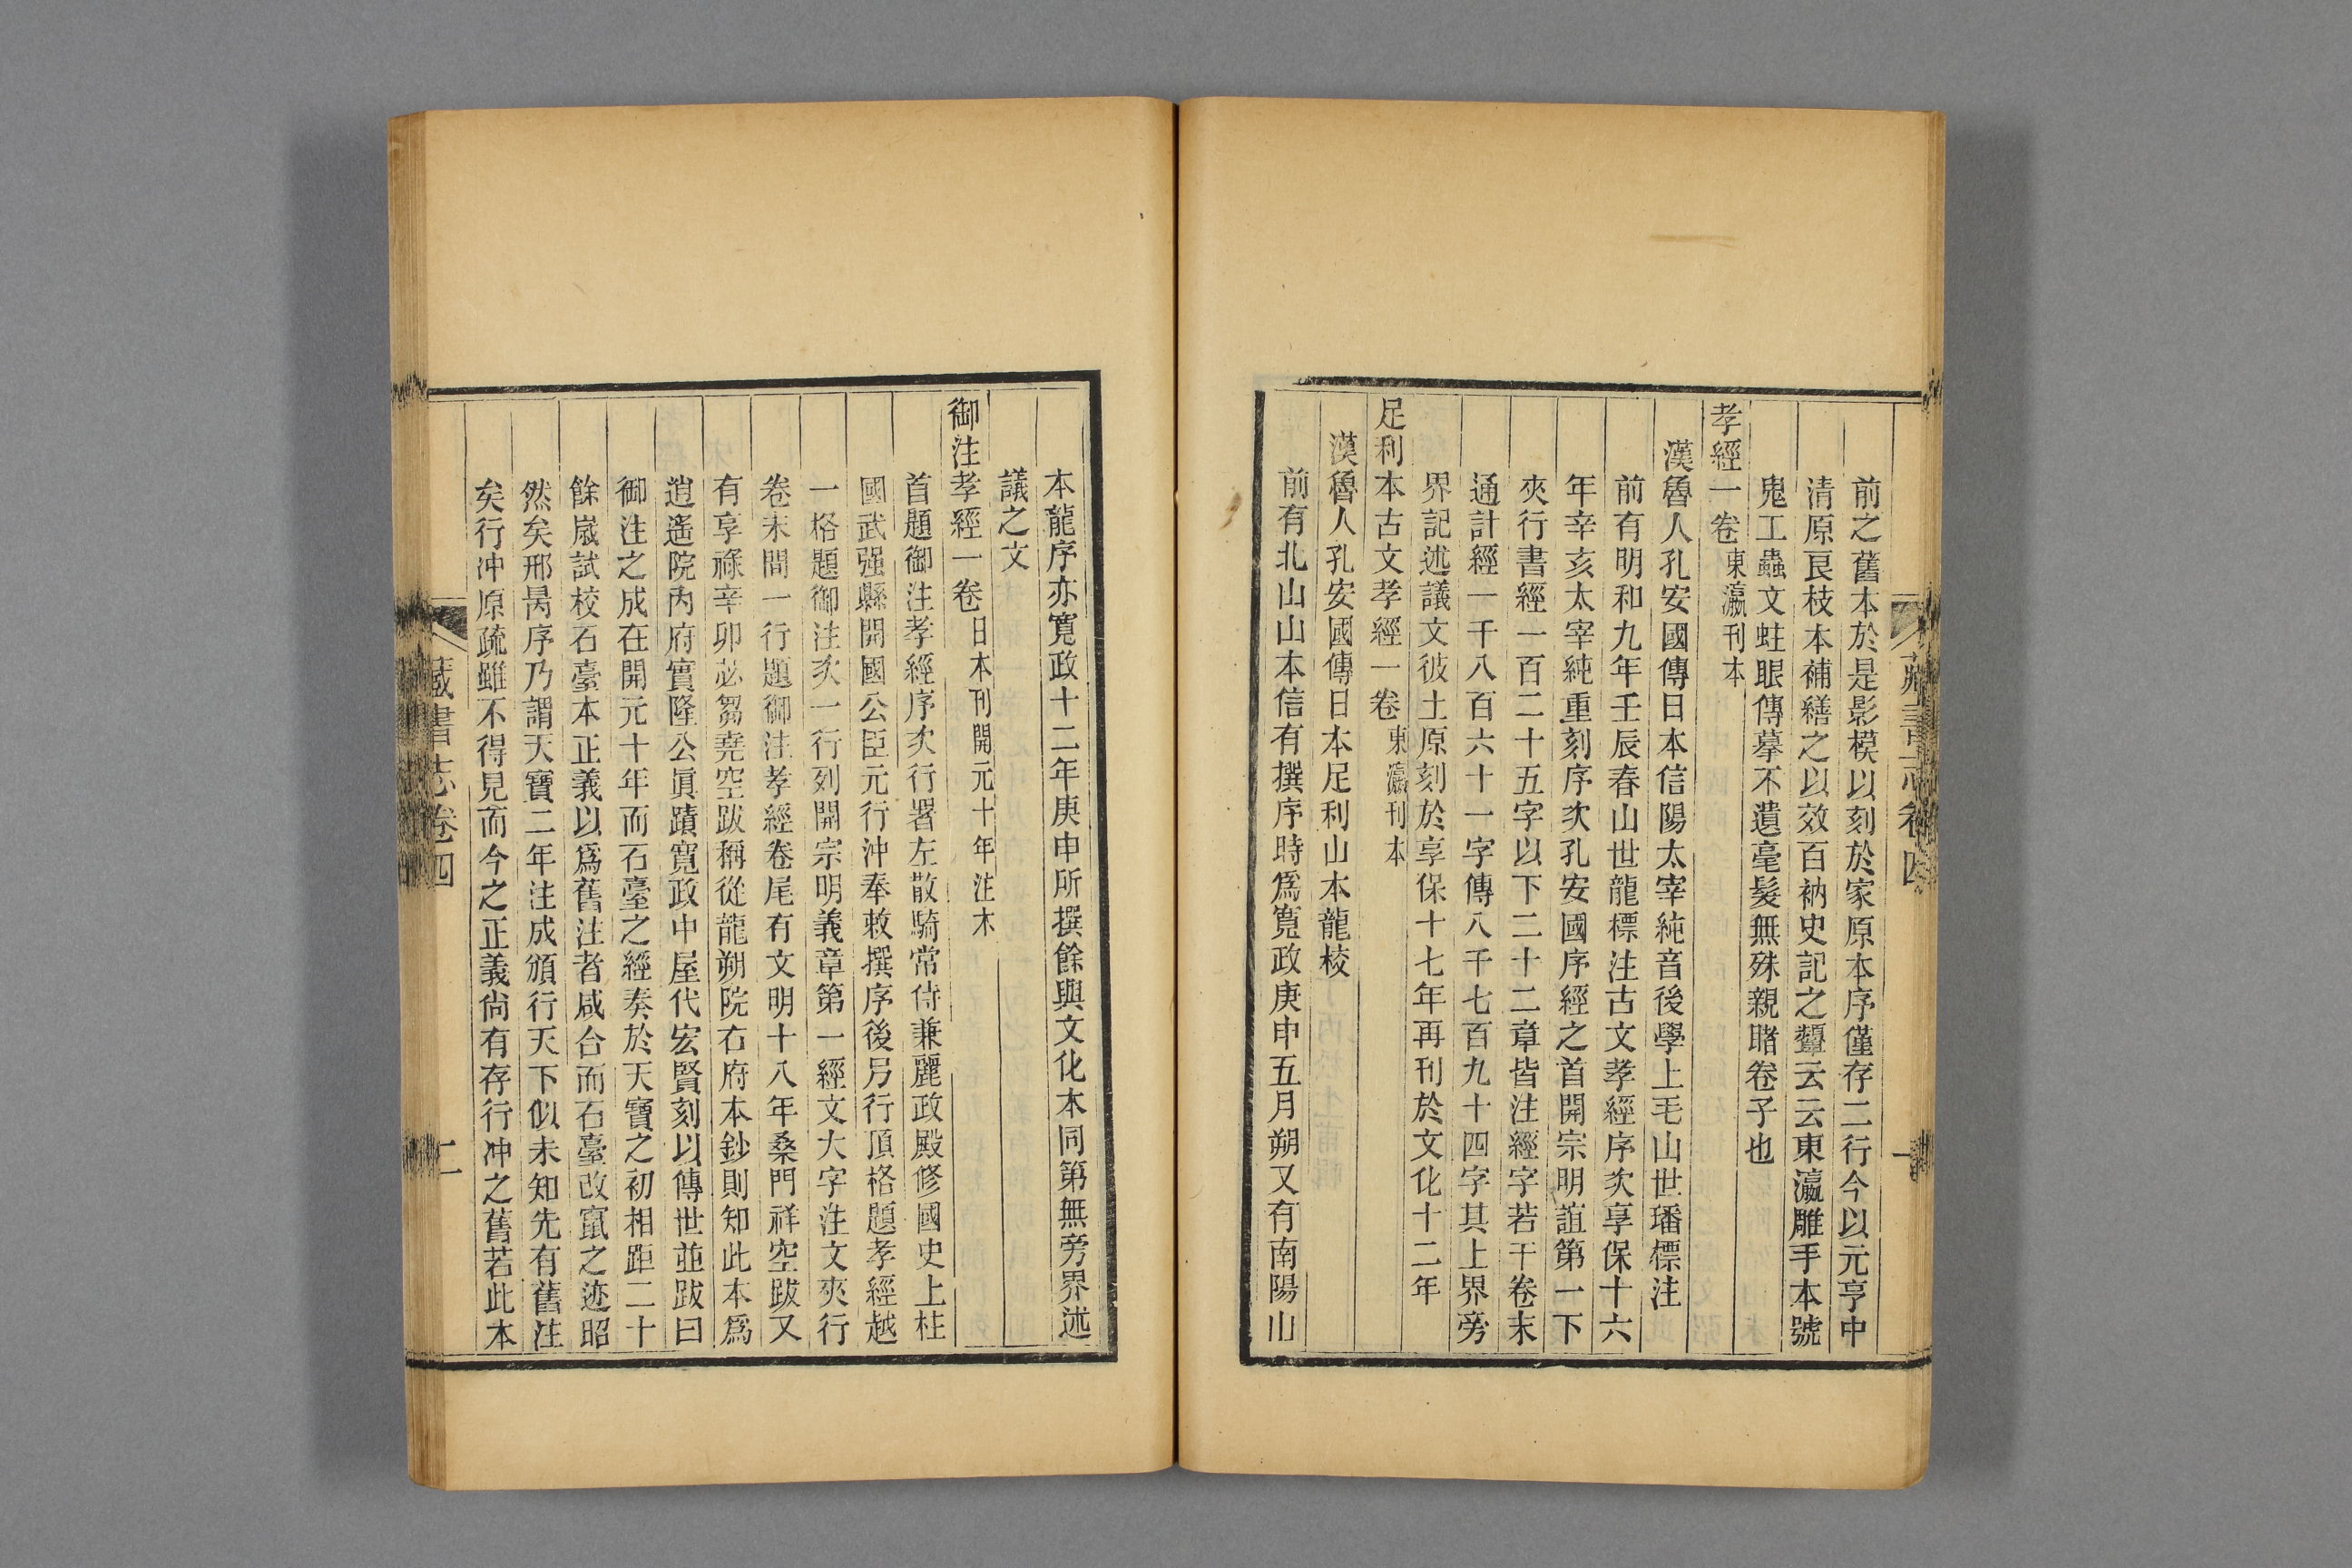 前之舊本於是影模以刻於家原本序僅存二行今以元亨中
清原良枝本補繕之以效百衲史記之顰云云東瀛雕手本號
鬼工蟲文蛀眼傳摹不遺毫髮無殊親睹卷子也
孝經一卷東瀛刊本
漢魯人孔安國傳日本信陽太宰純音後學上毛山世璠標注
前有明和九年壬辰春山世龍標注古文孝經序次享保十六
年辛亥太宰純重刻序次孔安國序經之首開宗明誼第一下
夾行書經一百二十五字以下二十二章皆注經字若干卷末
通計經一千八百六十一字傳八千七百九十四字其上界旁
界記述議文彼土原刻於享保十七年再刊於文化十二年
足利本古文孝經一卷東瀛刊本
漢魯人孔安國傳日本足利山本龍校
前有北山山本信有撰序時爲寬政庚申五月朔又有南陽山
本龍序亦寬政十二年庚申所撰餘與文化本同第無旁界述
議之文
御注孝經一卷日本刊開元十年注本
首題御注孝經序次行署左散騎常侍兼麗政殿修國史上柱
國武强縣開國公臣元行沖奉敕撰序後另行頂格題孝經越
一格題御注次一行列開宗明義章第一經文大字注文夾行
卷末間一行題御注孝經卷尾有文明十八年桑門祥空跋又
有享祿辛卯苾芻堯空跋稱從龍朔院右府本鈔則知此本爲
逍遙院內府實隆公眞蹟寬政中屋代宏賢刻以傳世並跋曰
御注之成在開元十年而石臺之經奏於天寶之初相距二十
餘嵗試校石臺本正義以爲舊注者咸合而石臺改竄之迹昭
然矣邢昺序乃謂天寶二年注成頒行天下似未知先有舊注
矣行沖原疏雖不得見而今之正義尙有存行沖之舊若此本
藏書志卷四
二